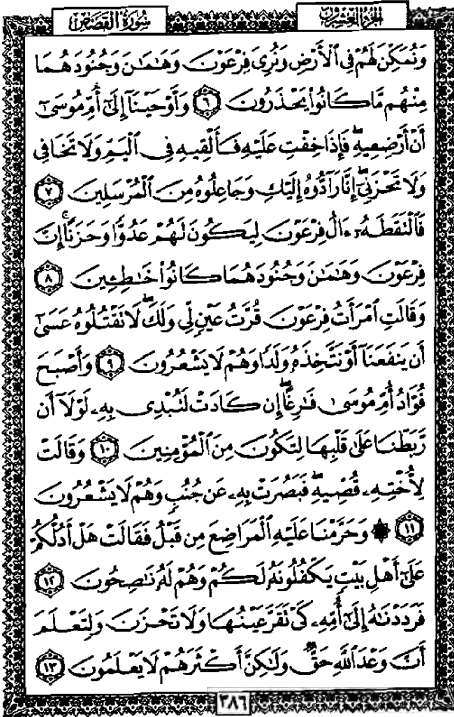 سُورَةُ القَصَصِ الجُزْءُ العِشْرُونَ
وَنُمَكِّنَ لَهُمْ فِي الْأَرْضِ وَنُرِيَ فِرْعَوْنَ وَهَامَانَ وَجُنُودَهُمَا
مِنْهُم مَّا كَانُوا يَحْذَرُونَ ٦ وَأَوْحَيْنَا إِلَىٰ أُمِّ مُوسَىٰ
أَنْ أَرْضِعِيهِ ۖ فَإِذَا خِفْتِ عَلَيْهِ فَأَلْقِيهِ فِي الْيَمِّ وَلَا تَخَافِي
وَلَا تَحْزَنِي ۖ إِنَّا رَادُّوهُ إِلَيْكِ وَجَاعِلُوهُ مِنَ الْمُرْسَلِينَ ٧
فَالْتَقَطَهُ ءَالُ فِرْعَوْنَ لِيَكُونَ لَهُمْ عَدُوًّا وَحَزَنًا ۗ إِنَّ
فِرْعَوْنَ وَهَامَانَ وَجُنُودَهُمَا كَانُوا خَاطِئِينَ ٨
وَقَالَتِ امْرَأَتُ فِرْعَوْنَ قُرَّتُ عَيْنٍ لِّي وَلَكَ ۖ لَا تَقْتُلُوهُ عَسَىٰ
أَن يَنفَعَنَا أَوْ نَتَّخِذَهُ وَلَدًا وَهُمْ لَا يَشْعُرُونَ ٩ وَأَصْبَحَ
فُؤَادُ أُمِّ مُوسَىٰ فَارِغًا ۖ إِن كَادَتْ لَتُبْدِي بِهِ لَوْلَا أَن
رَّبَطْنَا عَلَىٰ قَلْبِهَا لِتَكُونَ مِنَ الْمُؤْمِنِينَ ١٠ وَقَالَتْ
لِأُخْتِهِ قُصِّيهِ ۖ فَبَصُرَتْ بِهِ عَن جُنُبٍ وَهُمْ لَا يَشْعُرُونَ
١١ ۞ وَحَرَّمْنَا عَلَيْهِ الْمَرَاضِعَ مِن قَبْلُ فَقَالَتْ هَلْ أَدُلُّكُمْ
عَلَىٰ أَهْلِ بَيْتٍ يَكْفُلُونَهُ لَكُمْ وَهُمْ لَهُ نَاصِحُونَ ١٢
فَرَدَدْنَاهُ إِلَىٰ أُمِّهِ كَيْ تَقَرَّ عَيْنُهَا وَلَا تَحْزَنَ وَلِتَعْلَمَ
أَنَّ وَعْدَ اللَّهِ حَقٌّ وَلَٰكِنَّ أَكْثَرَهُمْ لَا يَعْلَمُونَ ١٣
٣٨٦